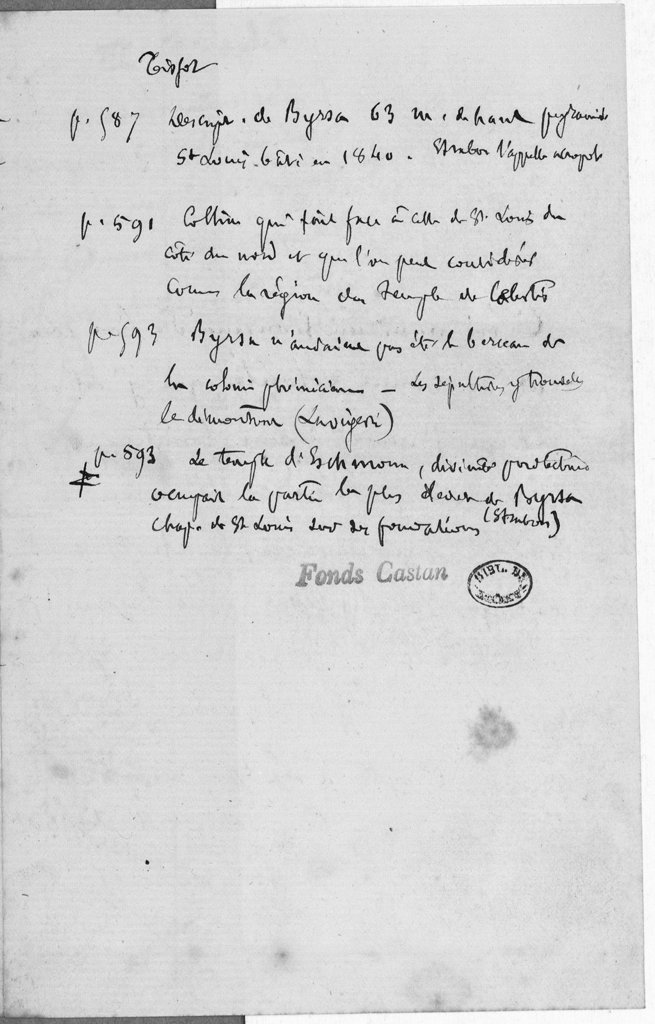 Tissot
p. 587 Descript. de Byrsa 63 m. de haut pyramide
St Louis bâti en 1840. Strabon l'appelle acropole
p. 591 Colline qui fait face à celle de St. Louis du
côté du nord et que l'on peut considérer
comme la région du temple de Coelestis
p. 593 Byrsa n'aurait pas été le berceau de
la colonie phénicienne — Les sépultures y trouvées
le démontrent (Lavigerie)
p. 593 Le temple d'Eschmoun, divinité protectrice
occupait la partie la plus élevée de Byrsa
chap. de St Louis sur ses fondations (Strabon)
Fonds Castan
BIBL. DE